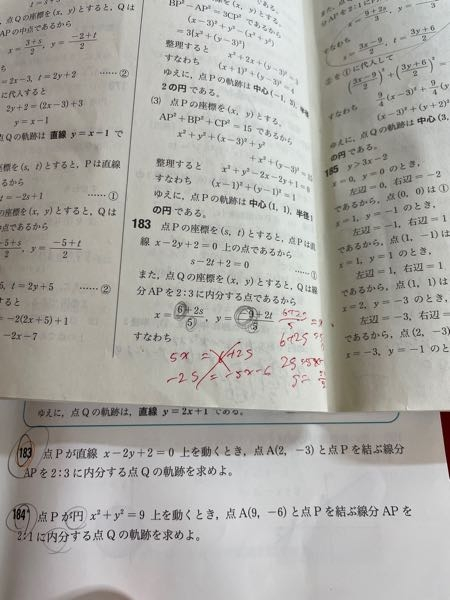 t=s+5
点Qの座標を(x, y)とすると, Qは
APの中点であるから
x=3+s/2, y=-2+t/2
=2x-3, t=2y+2 ……②
に代入すると
2y+2=(2x-3)+3
y=x-1
点Qの軌跡は 直線 y=x-1 で
t=-2s+1 ……①
点Qの座標を(x, y)とすると, Qは
中点であるから
-5+s/2, y=-5+t/2
t=2y+5 ……②
=-2(2x+5)+1
-2x-7
BP²-AP²=3CP² であるから
=3(x²+(y-3)²)
整理すると x²+2x+(y-3)²=3
すなわち (x+1)²+(y-3)²=4
ゆえに, 点Pの軌跡は 中心(-1, 3), 半径
2の円 である。
(3) 点Pの座標を(x, y)とする。
AP²+BP²+CP²=15 であるから
整理すると x²+y²-2x-2y+1=0
すなわち (x-1)²+(y-1)²=1
ゆえに, 点Pの軌跡は 中心(1, 1), 半径1
の円 である。
183 点Pの座標を(s, t)とすると, 点Pは直
線 x-2y+2=0 上の点であるから
s-2t+2=0 ……①
また, 点Qの座標を(x, y)とすると, Qは線
分APを2:3に内分する点であるから
x=6+2s/5, y=-9+2t/5
すなわち
5x=6+2s
-2s=-5x-6
6+2s/5=x
すなわち
x=3x-9/2, y=3y+6/2
②を①に代入して
(3x-9/2)²+(3y+6/2)²
すなわち 9/4(x-3)²+
(x-3)²+(y+2)²
ゆえに, 点Qの軌跡は 中心(3,
の円 である。
185 y>3x-2
x=0, y=0 のとき,
左辺=0, 右辺=-2
であるから, 点(0, 0)は①
x=1, y=-1 のとき,
左辺=-1, 右辺=1
であるから, 点(1, -1)は
x=1, y=1 のとき,
左辺=1, 右辺=1
であるから, 点(1, 1)は
x=2, y=-3 のとき,
左辺=-3, 右辺=
であるから, 点(2, -3)
x=-3, y=-1 のと
ゆえに, 点Qの軌跡は, 直線 y=2x+1 である。
183 点Pが直線 x-2y+2=0 上を動くとき, 点A(2, -3)と点Pを結ぶ線分
APを2:3に内分する点Qの軌跡を求めよ。
184 点Pが円 x²+y²=9 上を動くとき, 点A(9, -6)と点Pを結ぶ線分APを
2:1に内分する点Qの軌跡を求めよ。